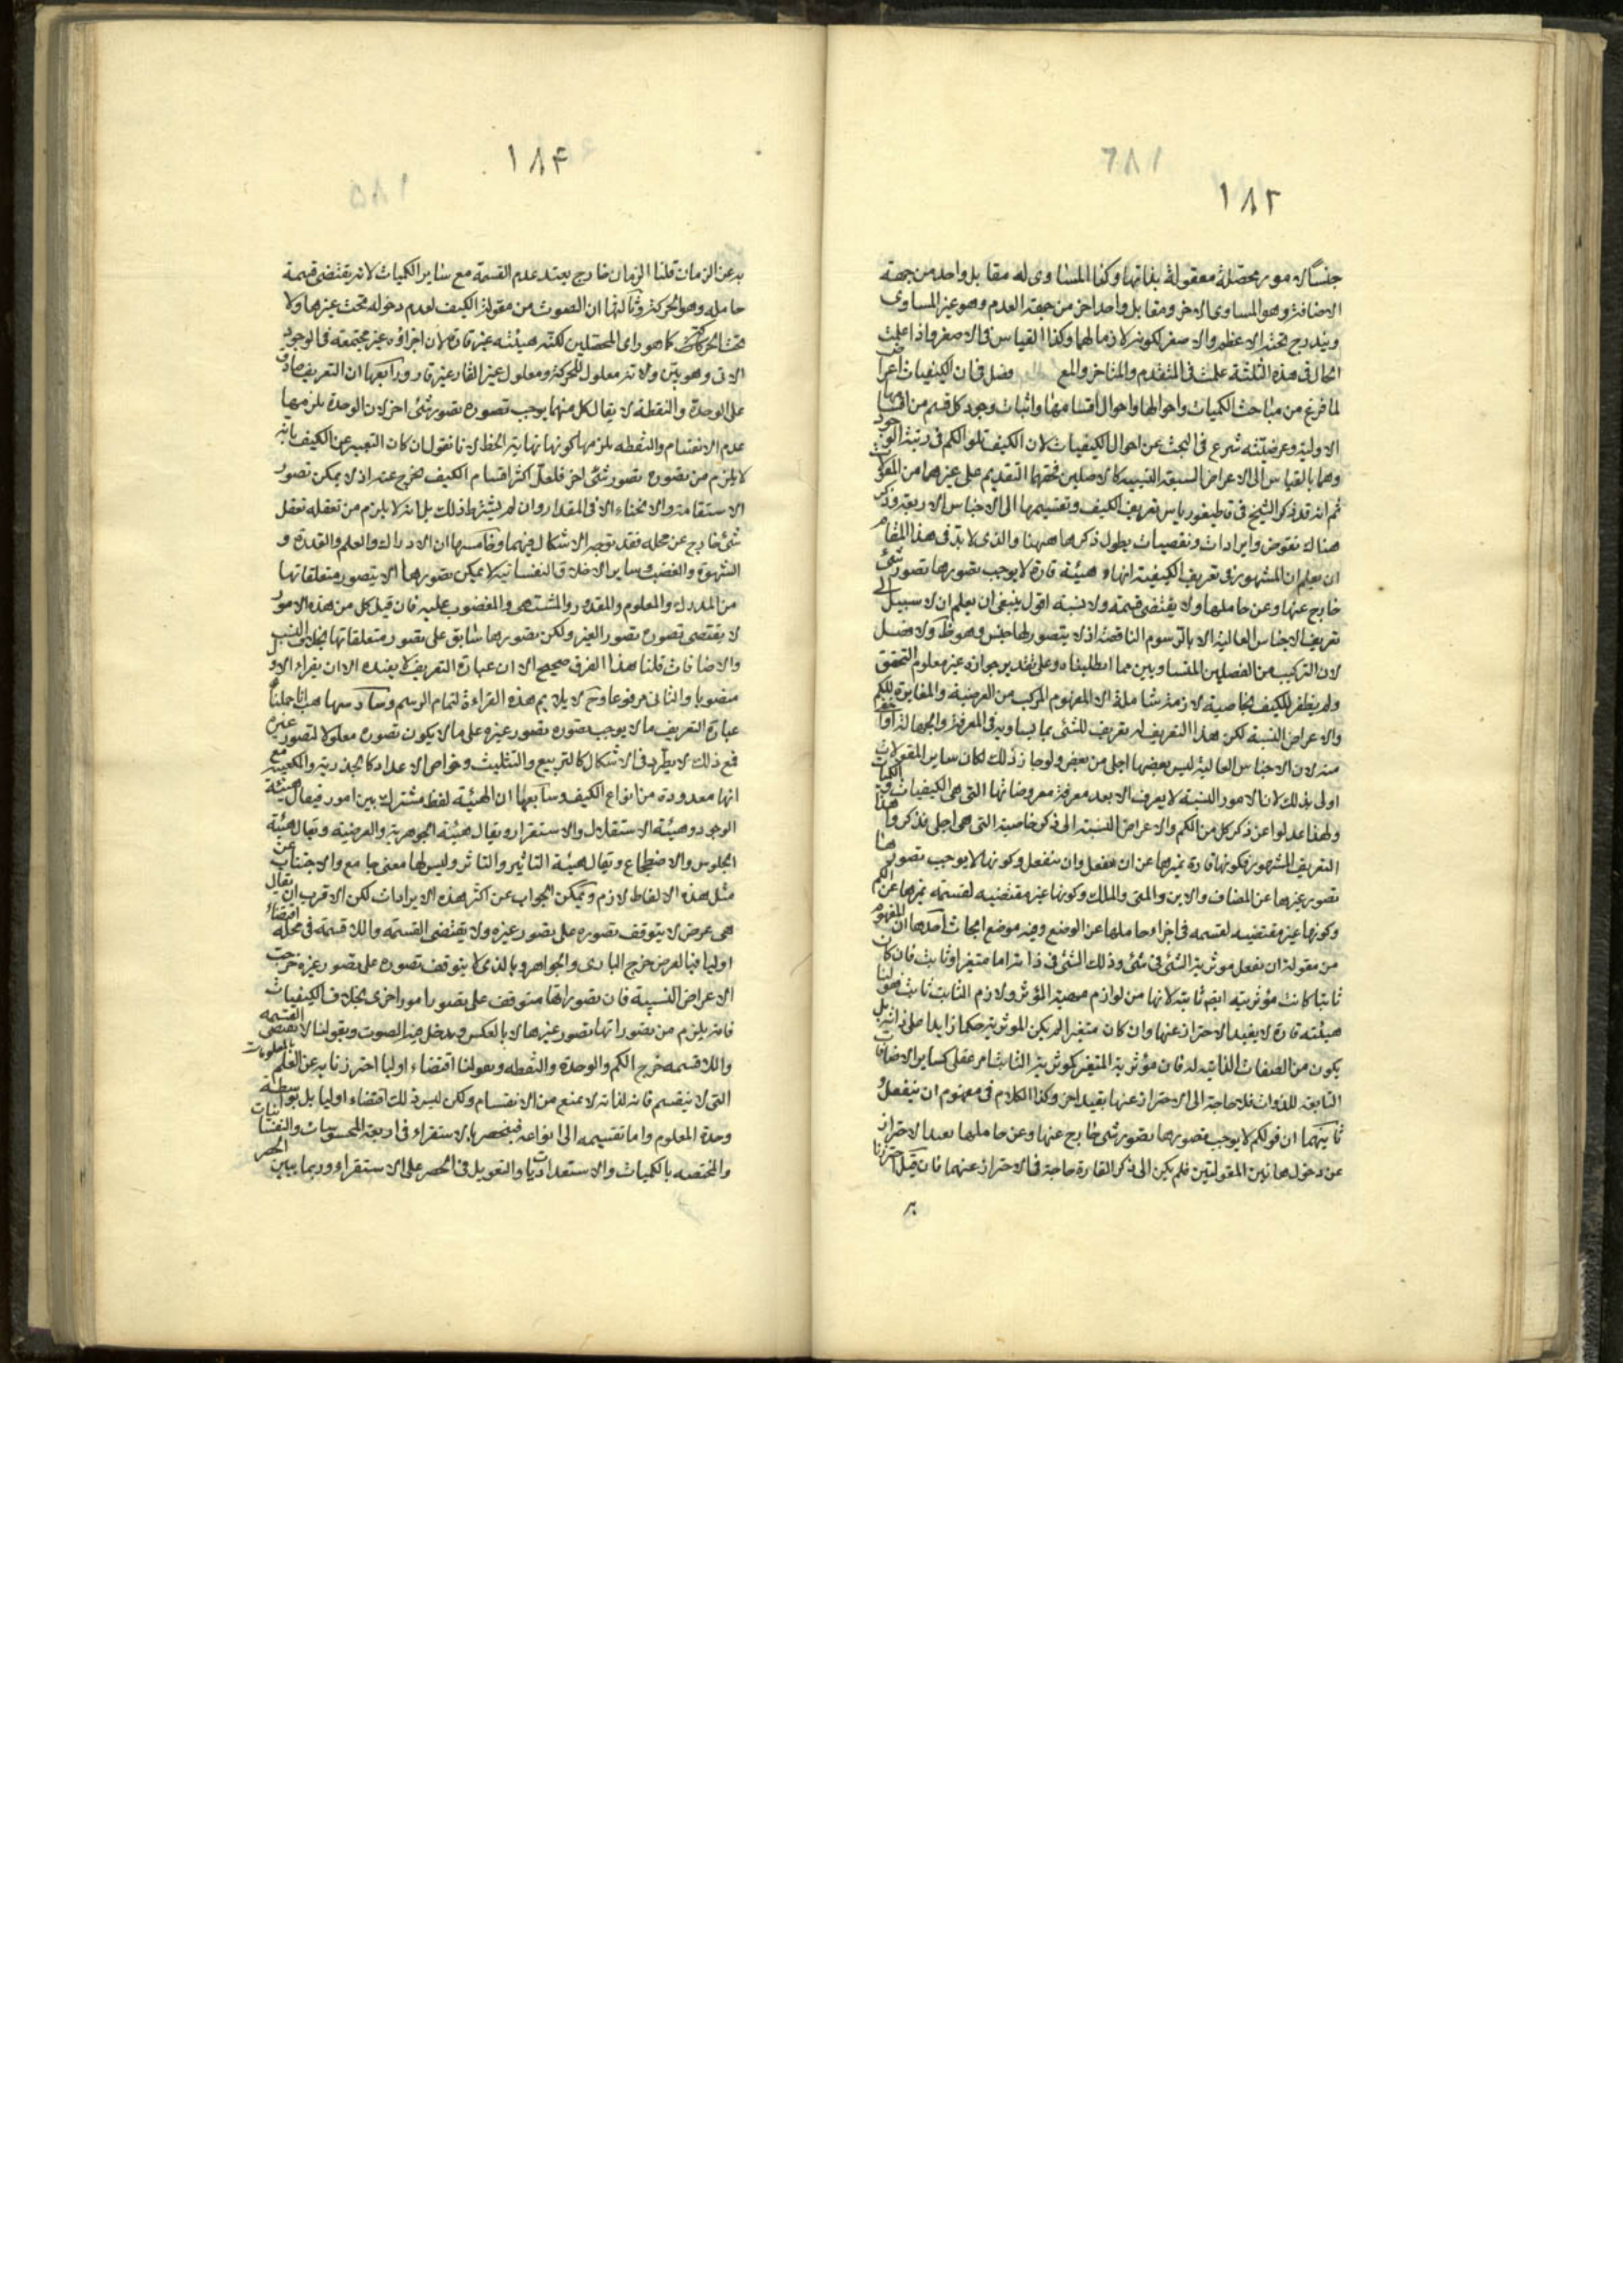 ١٨٢
جنسًا لامور محصّلة معقولة بذاتها وكذا المساوى له مقابل واحد من جهة
الاضافة وهو المساوى الاخر ومقابل واحد اخر من جهة العدم وهو غير المساوى
ويندرج تحته الاعظم والاصغر لكونه لازما لهما وكذا القياس فى الاصغر واذا علمت
الحال فى هذه الثلثة علمت فى المتقدم والمتاخر والمع فصل فى ان الكيفيات اعراض
لما فرغ من مباحث الكميات واحوالها واحوال اقسامها واثبات وجود كل قسم من اقسامها
الاولية وعرضيّته شرع فى البحث عن احوال الكيفيات لان الكيف تلو الكم فى رتبة الوجود
وهما بالقياس الى الاعراض السبعة النسبية كالاصلين فحقهما التقديم على غيرهما من المقولات
ثم انه قد ذكر الشيخ فى قاطيغورياس تعريف الكيف وتقسيمها الى الاجناس الاربعة وذكر
هناك نقوض وايرادات وتفصيات يطول ذكرها ههنا والذى لابدّ فى هذا المقام
ان يعلم ان المشهور فى تعريف الكيفية انها هيئة قارة لا يوجب تصورها تصور شئ
خارج عنها وعن حاملها ولا يقتضى قسمة ولا نسبة اقول ينبغى ان يعلم ان لا سبيل الى
تعريف الاجناس العالية الا بالرسوم الناقصة اذ لا يتصور لها جنس وهو ظ ولا فصل
لان التركيب من الفصلين المتساويين مما ابطلناه وعلى تقدير جوازه غير معلوم التحقق
ولم يظفر للكيف بخاصية لازمة شاملة الا المفهوم المركب من العرضية والمغايرة للكم
والاعراض النسبة لكن هذا التعريف له تعريف للشئ بما يساويه فى المعرفة والجهالة او اخفى
منه لان الاجناس العالية ليس بعضها اجلى من بعض ولو جاز ذلك لكان ساير المقولات
اولى بذلك لان الامور النسبة لا يعرف الا بعد معرفة معروضاتها التى هى الكيفيات والكميات
ولهذا عدلوا عن ذكر كل من الكم والاعراض النسبة الى ذكر خاصيته التى هى اجلى فذكروا هذا
التعريف المشهور فكونها قارة يميزها عن ان يفعل وان ينفعل وكونها لا يوجب تصورها
تصور غيرها عن المضاف والاين والمتى والملك وكونها غير مقتضيه لقسمة يميزها عن الكم
وكونها غير مقتضيه لقسمه فى اجزاء حاملها عن الوضع وفيه موضع ابحاث احدها ان المفهوم
من مقولة ان يفعل مؤثرية الشئ فى شئ وذلك الشئ فى ذاته اما متغير او ثابت فان كان
ثابتا كانت مؤثريته ايضا ثابتة لانها من لوازم مهية المؤثر ولازم الثابت ثابت فقولنا
هيئة قارة لا يفيد الاحتراز عنها وان كان متغيرا لم يكن المؤثرية حكما زايدا على ذاته بل
يكون من الصفات الذاتيه له فان مؤثرية المتغير كمؤثرية الثابت امر عقلى كساير الاضافات
التابعة للذوات فلا حاجة الى الاحتراز عنها بقيد اخر وكذا الكلام فى مفهوم ان ينفعل
ثانيهما ان قولكم لا يوجب تصورها تصور شئ خارج عنها وعن حاملها يفيد الاحتراز
عن دخول هاتين المقولتين فلم يكن الى ذكر القارة حاجة فى الاحتراز عنهما فان قيل احترزنا
١٨۴
به عن الزمان قلنا الزمان خارج بقيد عدم القسمة مع ساير الكميات لانه يقتضى قسمة
حامله وهو الحركة وثالثها ان الصوت من مقولة الكيف لعدم دخوله تحت غيرها ولا
تحت الحركات كما هو راى المحصلين لكنه هيئة غير قارة لان اجزاؤه غير مجتمعة فى الوجود
الانى وهو بيّن ولانه معلول للحركة ومعلول غير القار غير قار ورابعها ان التعريف صادق
على الوحدة والنقطة لا يقال كل منهما يوجب تصوره تصور شئ اخر لان الوحدة يلزمها
عدم الانقسام والنقطه يلزمها كونها نهاية الخط لانا نقول ان كان التعبير عن الكيف بانه
لا يلزم من تصوره تصور شئ اخر فلعل اكثر اقسام الكيف يخرج عنه اذ لا يمكن تصور
الاستقامة والانحناء الا فى المقدار وان لم يشترط ذلك بل انه لا يلزم من تعقله تعقل
شئ خارج عن محله فقد توجه الاشكال فيهما وخامسها ان الادراك والعلم والقدرة و
الشهوة والغضب وساير الاخلاق النفسانيه لا يمكن تصورها الا بتصور متعلقاتها
من المدرك والمعلوم والمقدور والمشتهى والمغضوب عليه فان قيل كل من هذه الامور
لا يقتضى تصوره تصور الغير ولكن تصورها سابق على تصور متعلقاتها بخلاف النسب
والاضافات قلنا هذا الفرق صحيح الا ان عبارة التعريف لا يفيده الا ان يقراء الاول
منصوبا والثانى مرفوعا وح لا يلايم هذه القراءة لتمام الرسم وسادسها هب انا حملنا
عبارة التعريف ما لا يوجب تصوره تصور غيره على ما لا يكون تصوره معلولا لتصور غيره
فمع ذلك لا يطّرد فى الاشكال كالتربيع والتثليث وخواص الاعداد كالجذرية والكعبية مع
انها معدودة من انواع الكيف وسابعها ان الهيئة لفظ مشترك بين امور فيقال هيئة
الوجود وهيئة الاستقلال والاستقرار ويقال هيئة الجوهرية والعرضية ويقال هيئة
الجلوس والاضطجاع ويقال هيئة التاثير والتاثر وليس لها معنى جامع والاجتناب عن
مثل هذه الالفاظ لازم ويمكن الجواب عن اكثر هذه الايرادات لكن الاقرب ان يقال
هى عرض لا يتوقف تصوره على تصور غيره ولا يقتضى القسمة واللاقسمة فى محله اقتضاء
اوليا فبالعرض خرج البارى والجواهر وبالذى لا يتوقف تصوره على تصور غيره خرجت
الاعراض النسبية فان تصوراتها متوقف على تصور امور اخرى بخلاف الكيفيات
فانه يلزم من تصوراتها تصور غيرها لا بالعكس ويدخل فيه الصوت وبقولنا لا يقتضى القسمه
واللاقسمه خرج الكم والوحدة والنقطه وبقولنا اقتضاء اوليا احترزنا به عن العلم بالمعلومات
التى لا ينقسم فانه لذاته لا يمنع من الانقسام ولكن ليس ذلك اقتضاء اوليا بل بواسطة
وحدة المعلوم واما تقسيمه الى انواعه فينحصر بالاستقراء فى اربعة المحسوسات والنفسانيات
والمختصه بالكميات والاستعدادات والتعويل فى الحصر على الاستقراء وربما يبين الحصر